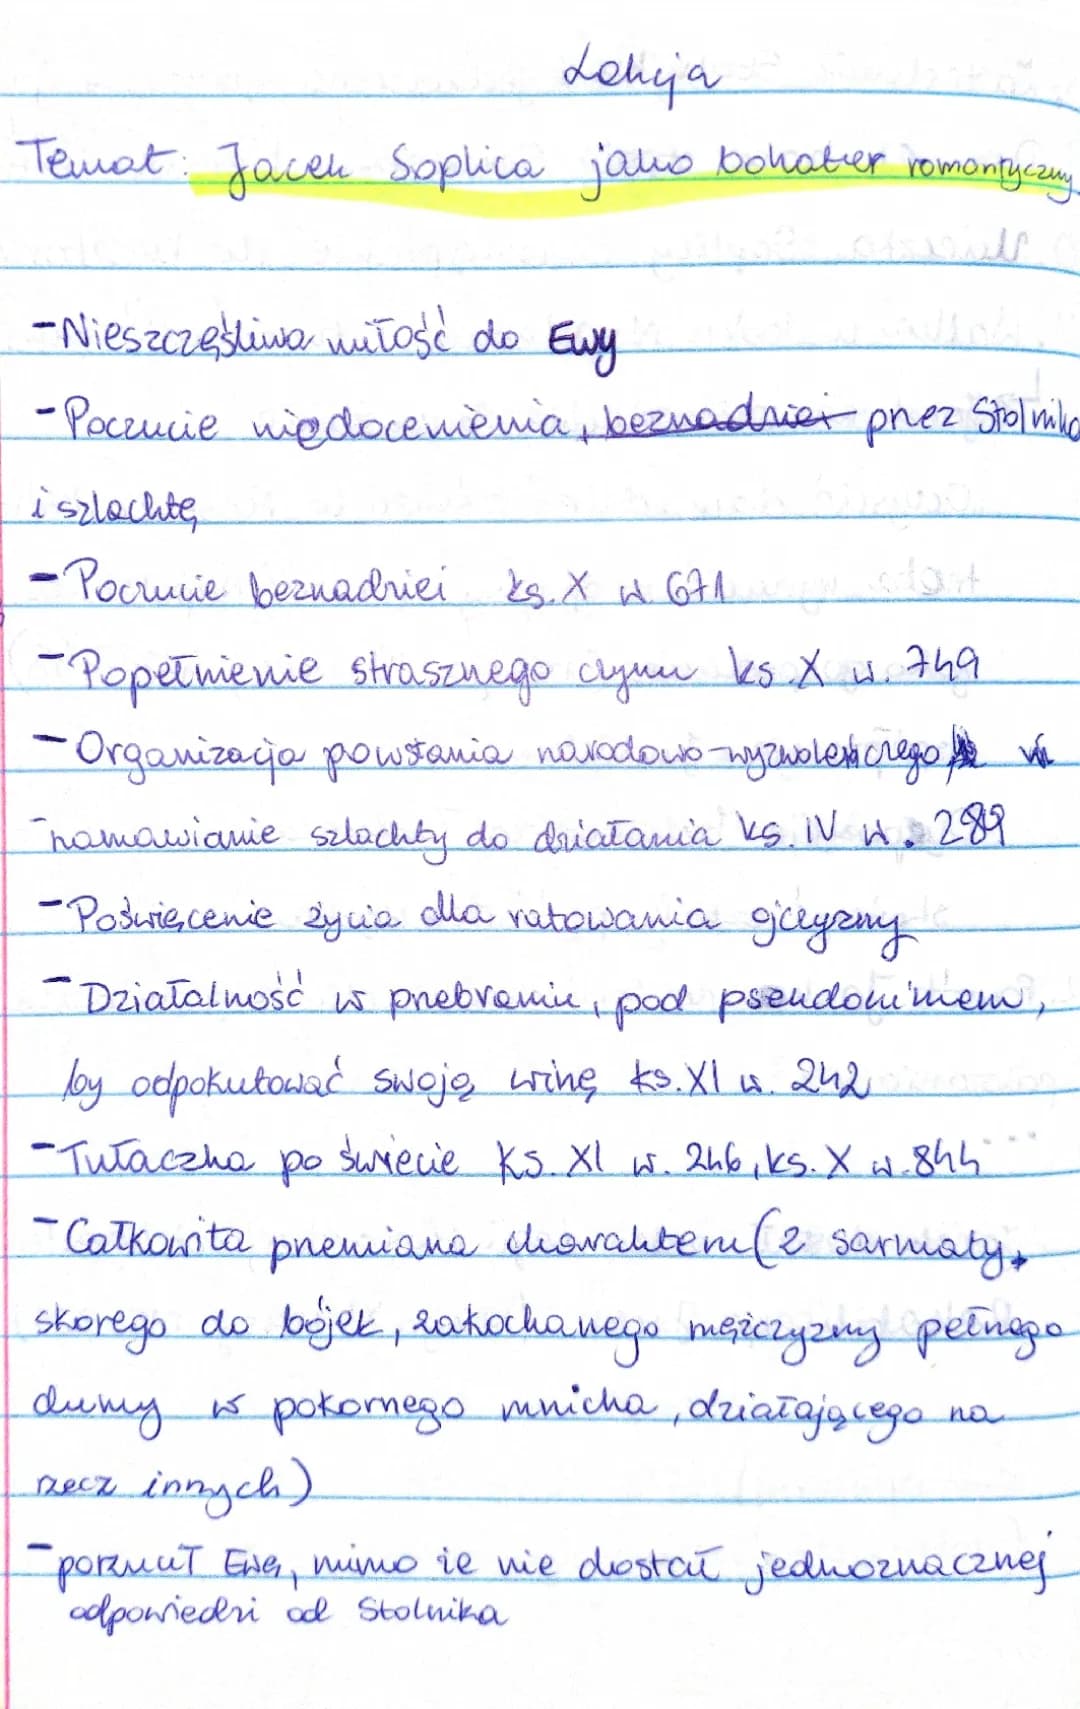 Lekcja
Temat: Jacek Soplica jako bohater romantyczny.
- Nieszczęśliwa miłość do Ewy
- Poczucie niedocenienia, beznadziei przez Stolnika
i szlachtę
- Poczucie beznadziei ks. X w. 671
- Popełnienie strasznego czynu ks. X w. 749
- Organizacja powstania narodowo-wyzwoleńczego
- namawianie szlachty do działania ks. IV w. 289
- Poświęcenie życia dla ratowania ojczyzny
- Działalność w przebraniu, pod pseudonimem,
by odpokutować swoją winę ks. XI w. 242
- Tułaczka po świecie ks. XI w. 246, ks. X w. 844
- Całkowita przemiana charakteru (z sarmaty,
skorego do bójek, zakochanego mężczyzny pełnego
dumy w pokornego mnicha, działającego na
rzecz innych)
- porzucił Ewę, mimo że nie dostał jednoznacznej
odpowiedzi od Stolnika